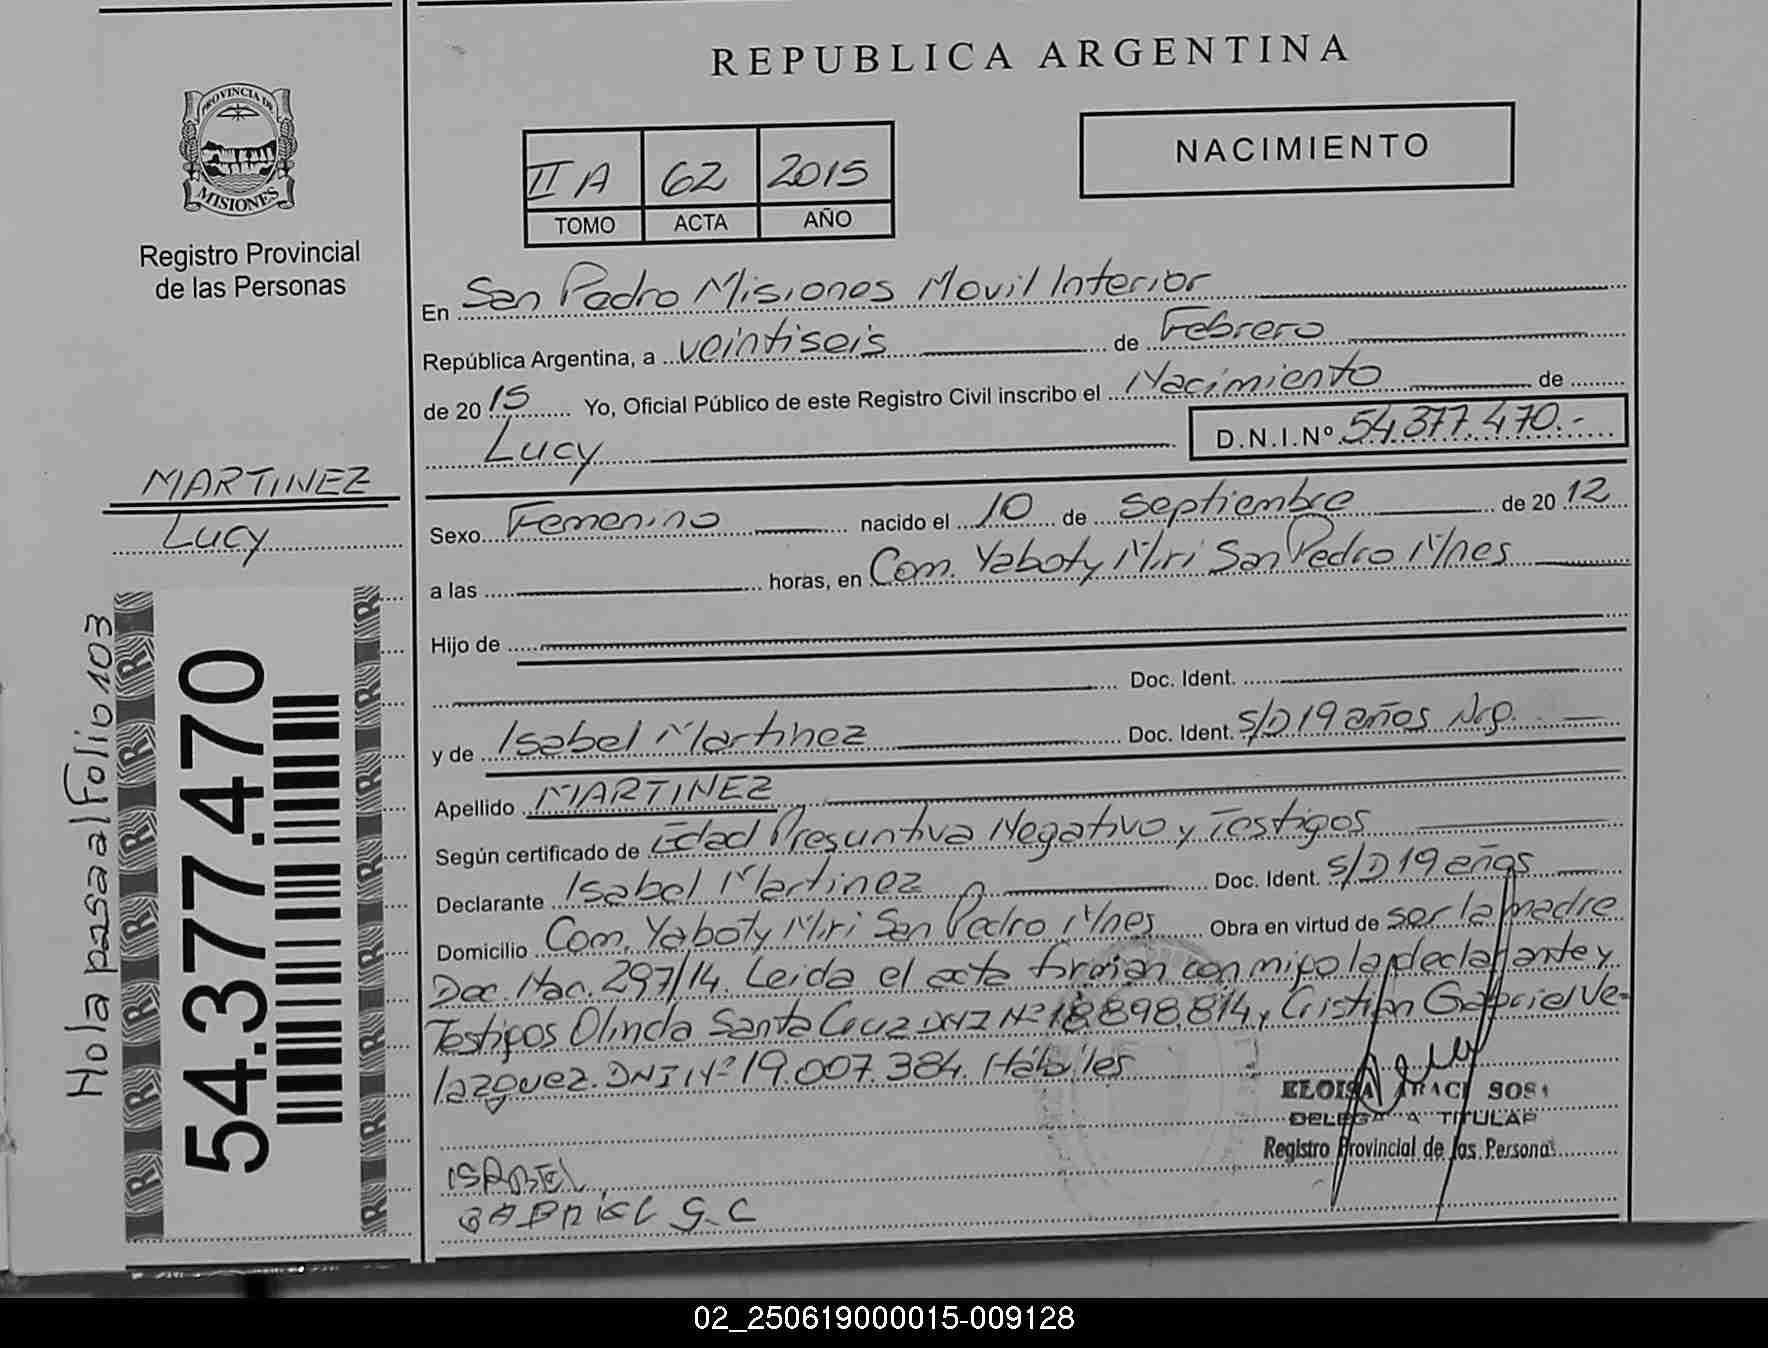 REPUBLICA ARGENTINA
PROVINCIA DE
MISIONES
Registro Provincial
de las Personas
II A 62 2015
TOMO ACTA AÑO
NACIMIENTO
En San Pedro Misiones Movil Interior
República Argentina, a veintiseis de Febrero
de 2015 Yo, Oficial Público de este Registro Civil inscribo el Nacimiento de
Lucy D.N.I.Nº 54.377.470.-
MARTINEZ
Lucy
Sexo Femenino nacido el 10 de septiembre de 2012
a las horas, en Com. Yaboty Miri San Pedro Mnes
Hijo de
Doc. Ident.
y de Isabel Martinez Doc. Ident. S/D 19 años Arg.
Apellido MARTINEZ
Según certificado de Edad Presuntiva Negativo y Testigos
Declarante Isabel Martinez Doc. Ident. S/D 19 años
Domicilio Com. Yaboty Miri San Pedro Mnes Obra en virtud de ser la madre
Doc. Nac. 297/14. Leida el acta firman conmigo la declarante y
Testigos Olinda Santa Cruz DNI Nº 18.898.814 y Cristian Gabriel Ve-
lazquez. DNI Nº 19.007.384. Hábiles
ELOISA ARACI SOSA
DELEGADA TITULAR
Registro Provincial de las Personas
ISABEL
GABRIEL G.C
Hola pasa al Folio 103
54.377.470
02_250619000015-009128